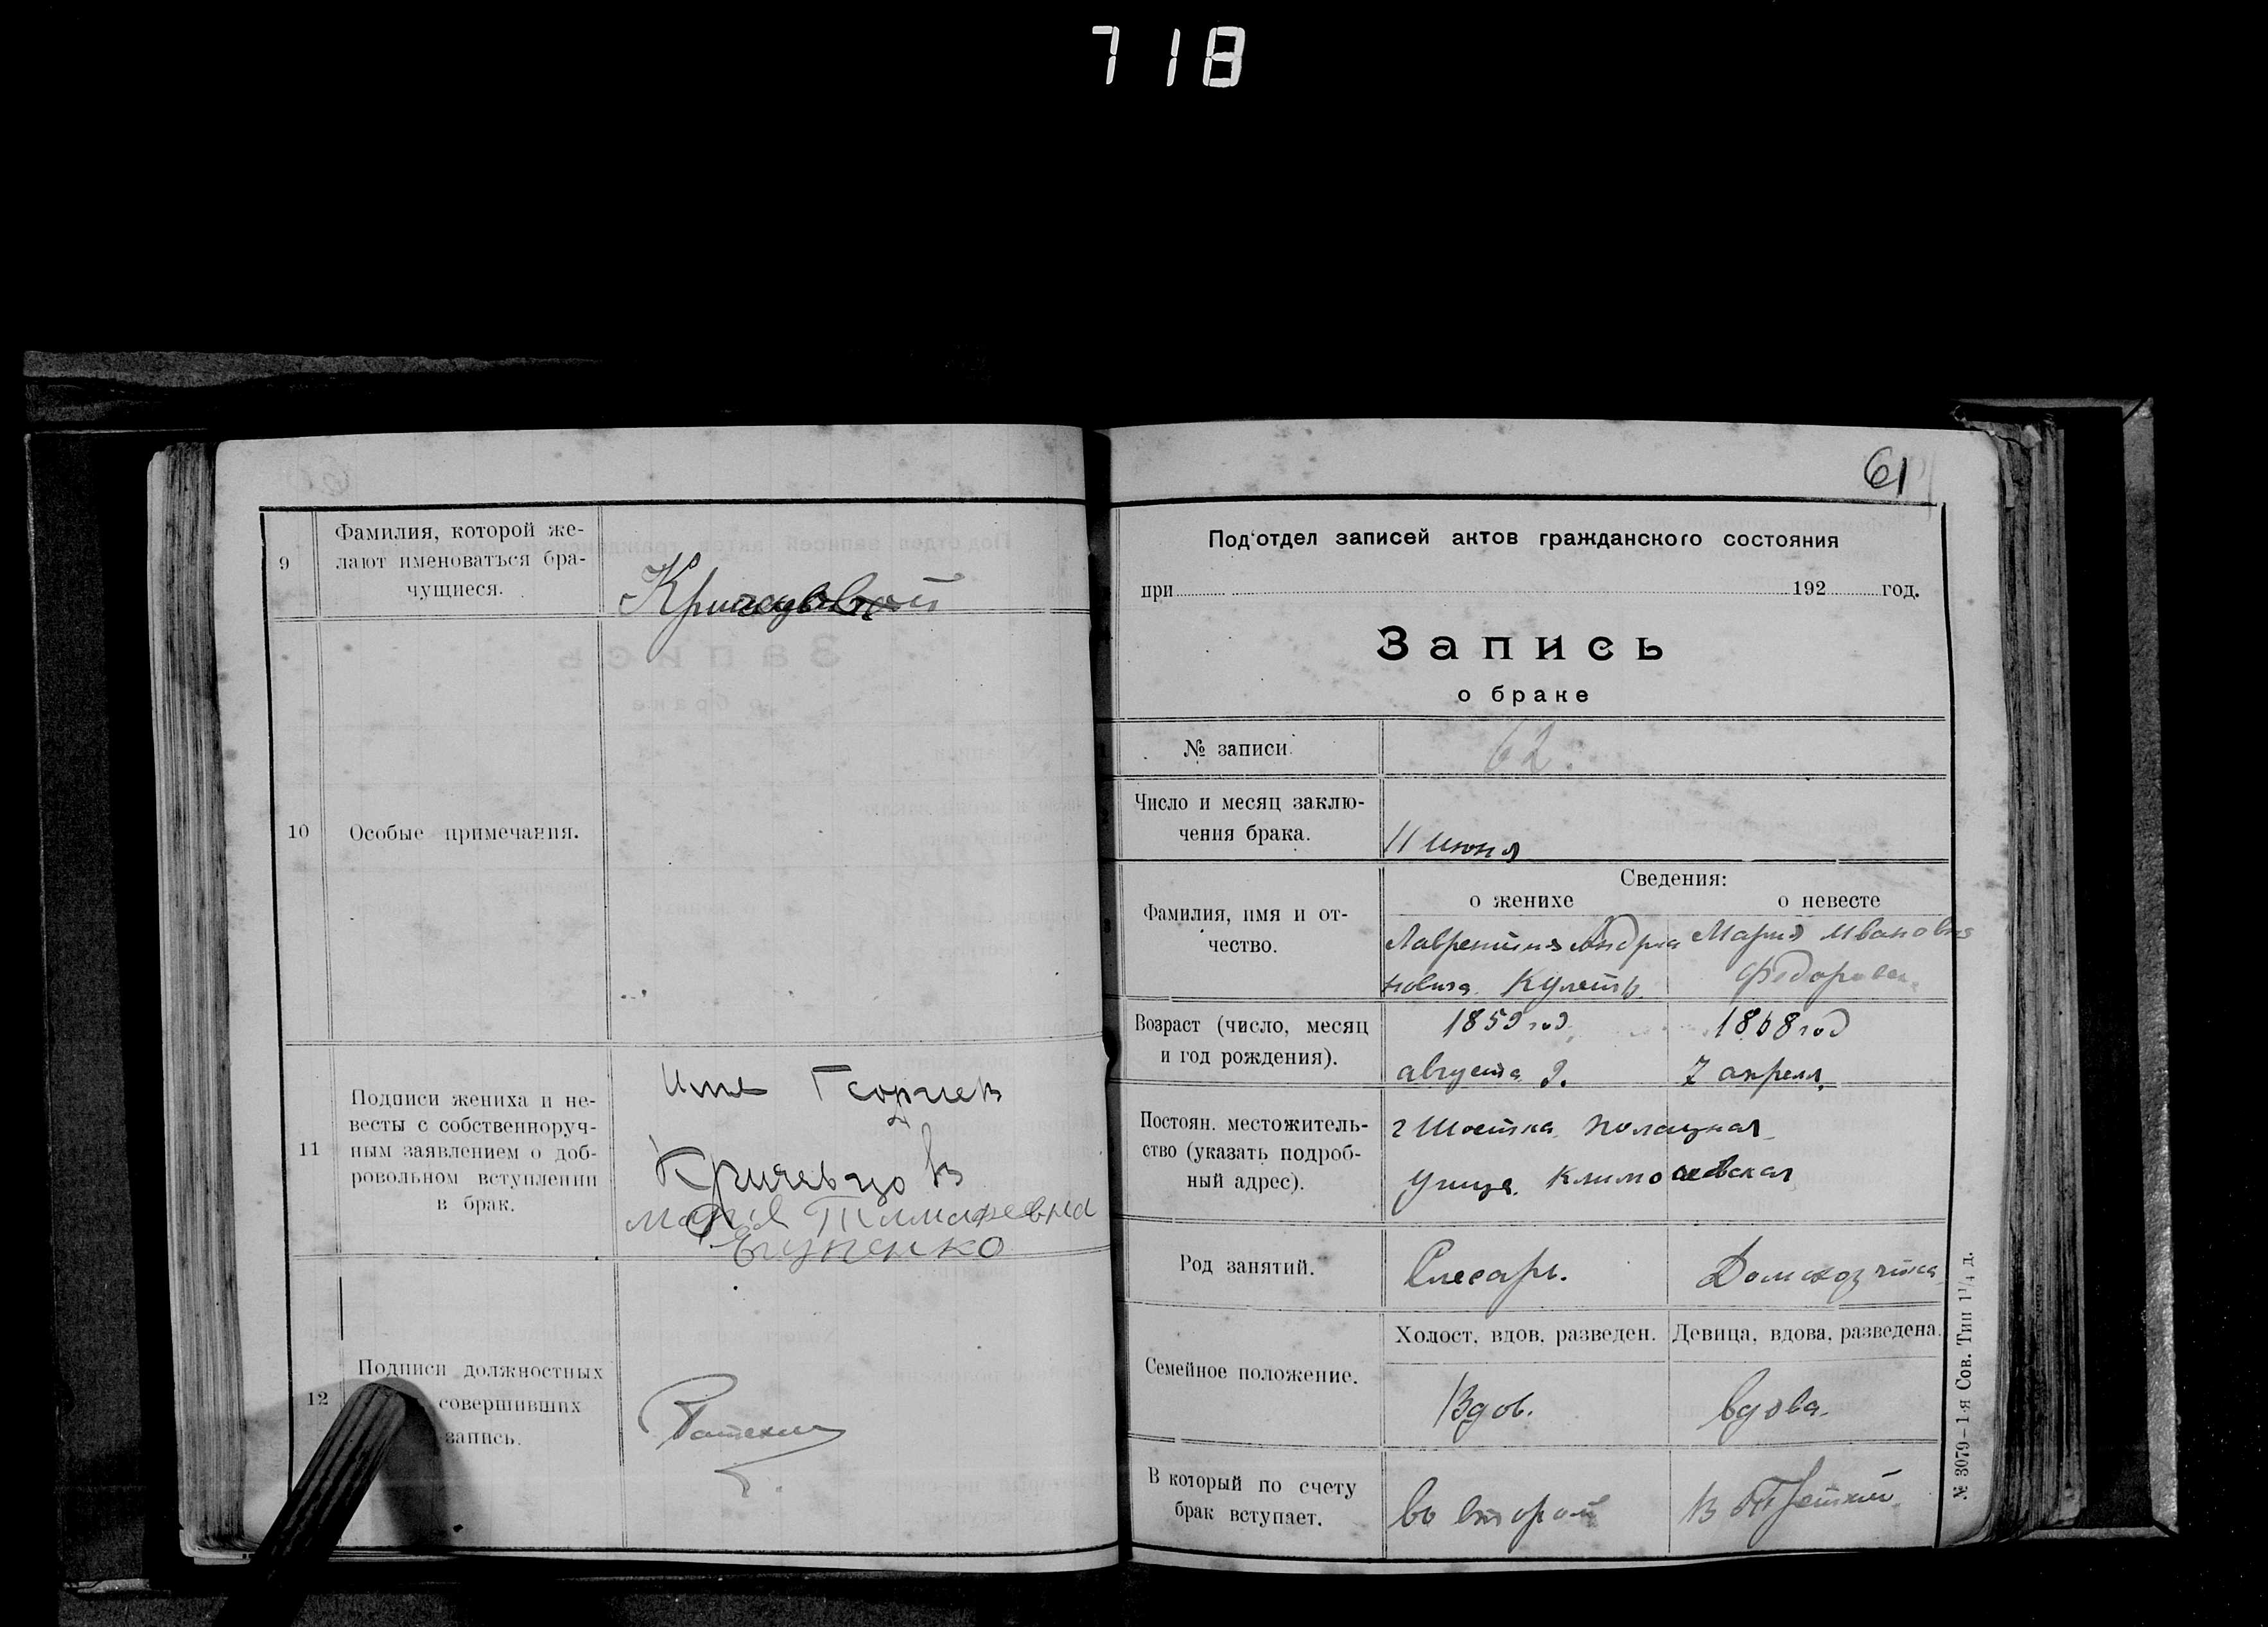 718
9
Фамилия, которой же-
лают именоваться бра-
чущиеся.
10
Особые примечания.
11
Подписи жениха и не-
весты с собственноруч-
ным заявлением о доб-
ровольном вступлении
в брак.
Кричевцов
Мария Тимофеевна
12
Подписи должностных
совершивших
запись.
61
Под'отдел записей актов гражданского состояния
при 192 год.
Запись
о браке
№ записи.
62
Число и месяц заклю-
чения брака.
11 июня
Сведения:
о женихе
о невесте
Фамилия, имя и от-
чество.
Мария Ивановна
Возраст (число, месяц
и год рождения).
1859 год
августа 9.
1868 год
7 апреля
Постоян. местожитель-
ство (указать подроб-
ный адрес).
г Шостка
Род занятий.
Слесарь.
Семейное положение.
Холост, вдов, разведен.
Девица, вдова, разведена.
Вдов.
вдова.
В который по счету
брак вступает.
во второй
в третий
№ 3079–1-я Сов. Тип 1¹/₄ д.